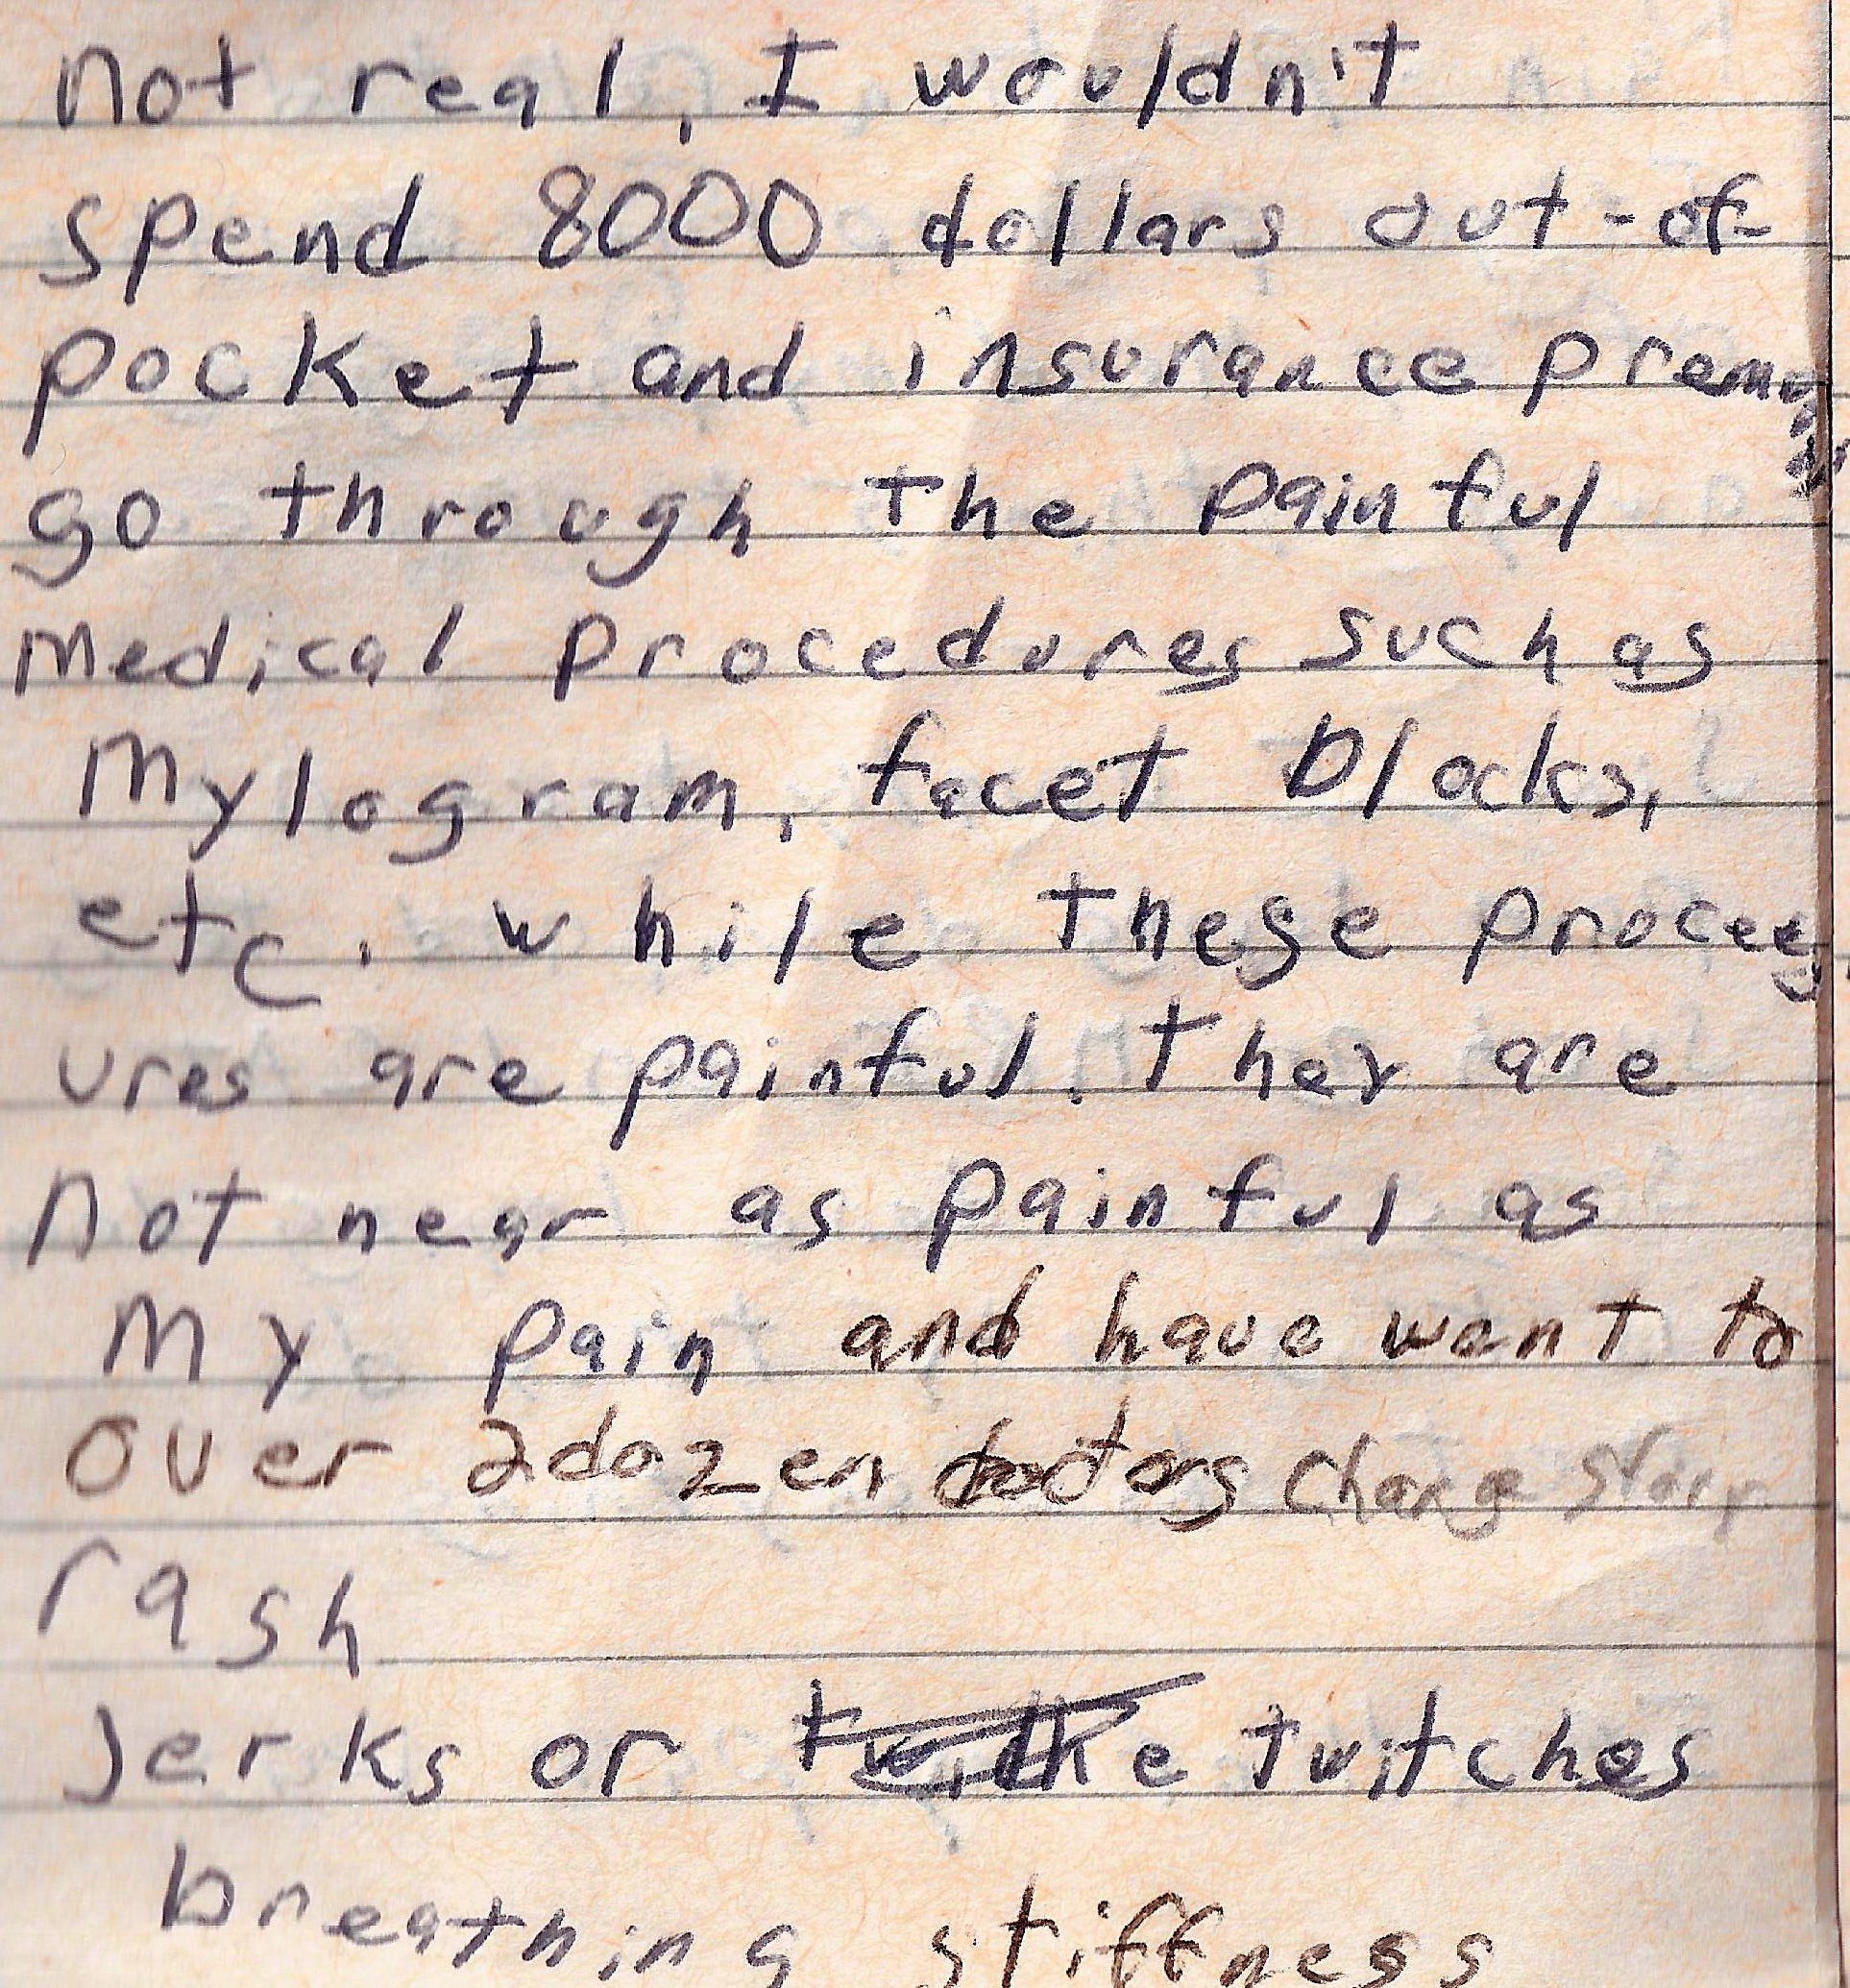 not real, I wouldn't
spend 8000 dollars out-of-
pocket and insurance
go through the painful
medical procedures such as
mylogram, facet blocks,
etc. while these
ures are painful. They are
not near as painful as
my pain and have went to
over 2dozen doctors change story
rash
Jerks or twitches
breathing stiffness